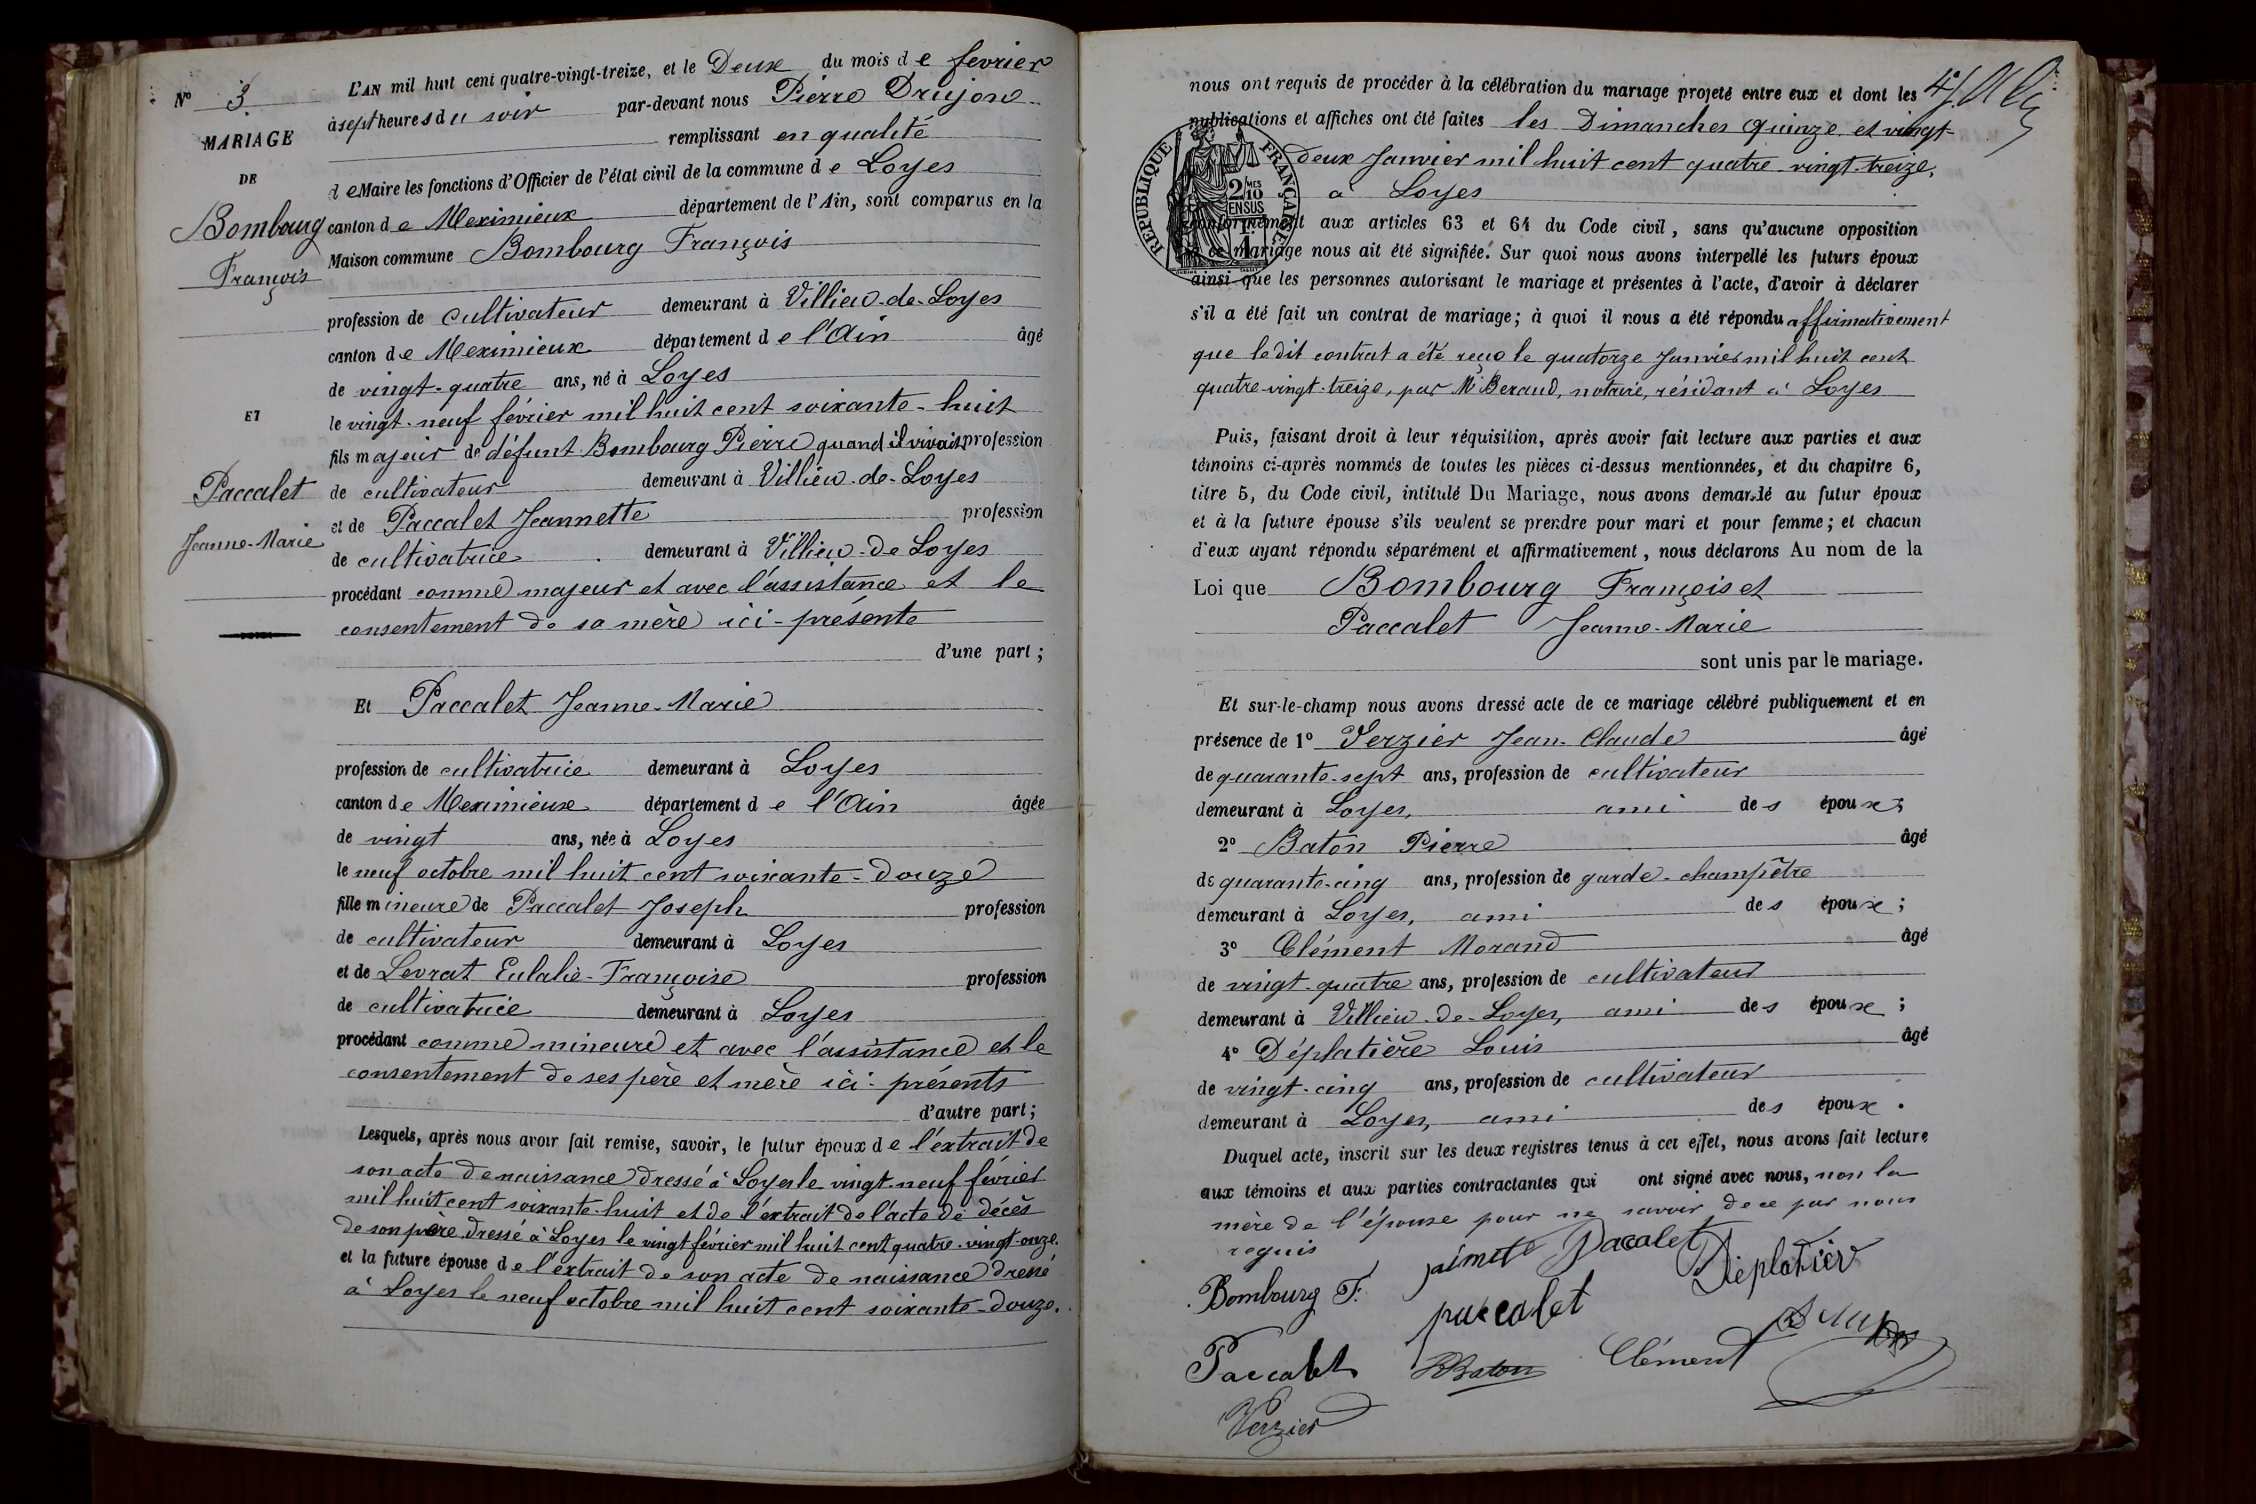 N° 3
MARIAGE
DE
Bombourg
François
ET
Paccalet
Jeanne-Marie
L'AN mil huit cent quatre-vingt-treize, et le Deux du mois de février
à sept heures du soir par-devant nous Pierre Drujon
remplissant en qualité
de Maire les fonctions d'Officier de l'état civil de la commune de Loyes
canton de Meximieux département de l'Ain, sont comparus en la
Maison commune Bombourg François
profession de cultivateur demeurant à Villieu-de-Loyes
canton de Meximieux département de l'Ain âgé
de vingt-quatre ans, né à Loyes
le vingt-neuf février mil huit cent soixante-huit
fils majeur de défunt Bombourg Pierre quand il vivait, profession
de cultivateur demeurant à Villieu-de-Loyes
et de Paccalet Jeannette profession
de cultivatrice demeurant à Villieu-de Loyes
procédant comme majeur et avec l'assistance et le
consentement de sa mère ici-présente
d'une part;
Et Paccalet Jeanne-Marie
profession de cultivatrice demeurant à Loyes
canton de Meximieux département de l'Ain âgée
de vingt ans, née à Loyes
le neuf octobre mil huit cent soixante-douze
fille mineure de Paccalet Joseph profession
de cultivateur demeurant à Loyes
et de Levrat Eulalie-Françoise profession
de cultivatrice demeurant à Loyes
procédant comme mineure et avec l'assistance et le
consentement de ses père et mère ici-présents
d'autre part;
Lesquels, après nous avoir fait remise, savoir, le futur époux de l'extrait de
son acte de naissance dressé à Loyes le vingt-neuf février
mil huit cent soixante-huit et de l'extrait de l'acte de décès
de son père dressé à Loyes le vingt février mil huit cent quatre-vingt-onze.
et la future épouse de l'extrait de son acte de naissance dressé
à Loyes le neuf octobre mil huit cent soixante-douze.
nous ont requis de procéder à la célébration du mariage projeté entre eux et dont les
publications et affiches ont été faites les Dimanches quinze et vingt-
deux Janvier mil huit cent quatre-vingt-treize,
à Loyes
conformément aux articles 63 et 64 du Code civil, sans qu'aucune opposition
à ce mariage nous ait été signifiée. Sur quoi nous avons interpellé les futurs époux
ainsi que les personnes autorisant le mariage et présentes à l'acte, d'avoir à déclarer
s'il a été fait un contrat de mariage; à quoi il nous a été répondu affirmativement
que ledit contrat a été reçu le quatorze Janvier mil huit cent
quatre-vingt-treize, par Me Beraud, notaire, résidant à Loyes
RÉPUBLIQUE FRANÇAISE
2/10 MES
EN SUS
Puis, faisant droit à leur réquisition, après avoir fait lecture aux parties et aux
témoins ci-après nommés de toutes les pièces ci-dessus mentionnées, et du chapitre 6,
titre 5, du Code civil, intitulé Du Mariage, nous avons demandé au futur époux
et à la future épouse s'ils veulent se prendre pour mari et pour femme; et chacun
d'eux ayant répondu séparément et affirmativement, nous déclarons Au nom de la
Loi que Bombourg François et
Paccalet Jeanne-Marie
sont unis par le mariage.
Et sur-le-champ nous avons dressé acte de ce mariage célébré publiquement et en
présence de 1° Verzier Jean-Claude âgé
de quarante-sept ans, profession de cultivateur
demeurant à Loyes, ami des époux;
2° Baton Pierre âgé
de quarante-cinq ans, profession de garde-champêtre
demeurant à Loyes, ami des époux;
3° Clément Morand âgé
de vingt-quatre ans, profession de cultivateur
demeurant à Villieu-de-Loyes, ami des époux;
4° Déplatière Louis âgé
de vingt-cinq ans, profession de cultivateur
demeurant à Loyes, ami des époux.
Duquel acte, inscrit sur les deux registres tenus à cet effet, nous avons fait lecture
aux témoins et aux parties contractantes qui ont signé avec nous, non la
mère de l'épouse pour ne savoir de ce par nous
requis
Bombourg F. Pacalet Déplatier
paccalet
Paccalet PBaton Clément
Verzier